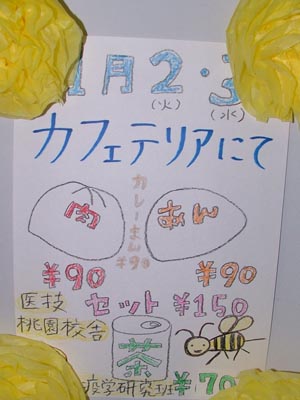 1月2・3
(火) (水)
カフェテリアにて
肉
カレーまん
¥90
あん
¥90
¥90
セット ¥150
医技
桃園校舎
茶
疫学研究班 ¥70